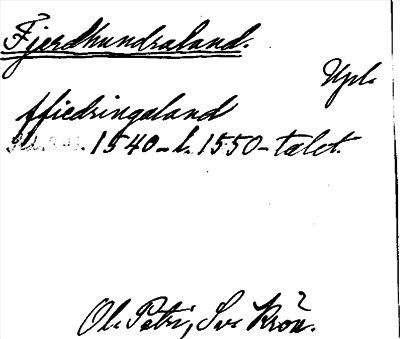 Fjerdhundraland.
Upl.
ffiedringaland
1540-l. 1550-talet.
Ol. Petri, Sv. Krön.